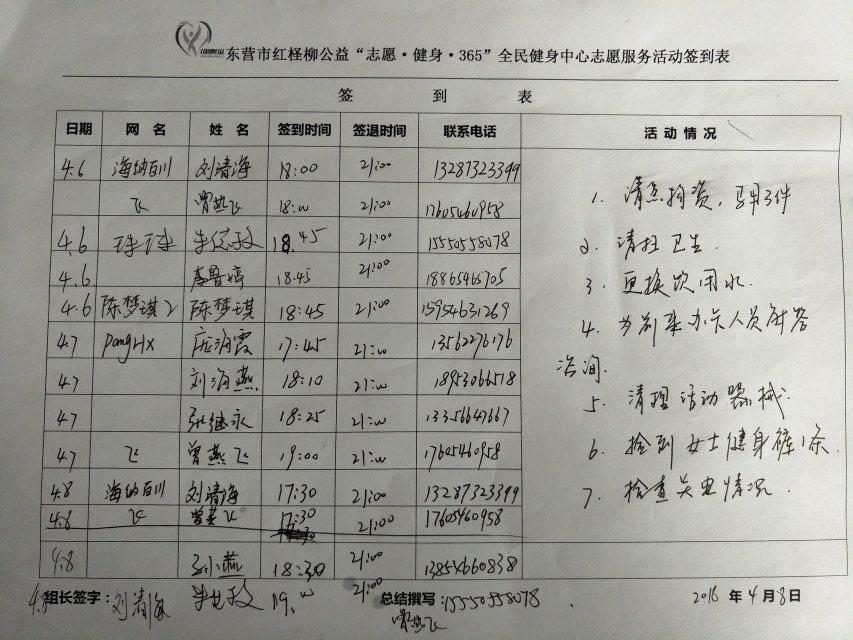 东营市红柽柳公益“志愿·健身·365”全民健身中心志愿服务活动签到表
签 到 表
日期 网 名 姓 名 签到时间 签退时间 联系电话 活 动 情 况
4.6 海纳百川 刘清海 18:00 21:00 13287323399
飞 曾燕飞 18:00 21:00 17605460958
4.6 18.45 21:00 15550558078
4.6 18:45 21:00 18865465705
4.6 陈梦琪2 陈梦琪 18:45 21:00 15954631269
4.7 17:45 21:00 13562276176
4.7 刘海燕 18:10 21:00 18953066518
4.7 张继永 18:25 21:00 13356647667
4.7 飞 曾燕飞 19:00 21:00 17605460958
4.8 海纳百川 刘清海 17:30 21:00 13287323399
4.8 飞 曾燕飞 17:30 21:00 17605460958
4.8 孙燕 18:30 21:00 13854660838
1. 清点物资,
2. 清扫卫生.
3. 更换饮用水.
4. 为前来办卡人员解答
咨询.
5. 清理活动器械.
6. 捡到女士健身裤1条.
7. 检查关电情况.
4.8 组长签字: 刘清海 19.00 21:00 总结撰写: 15550558078 2018 年 4 月 8 日
曾燕飞